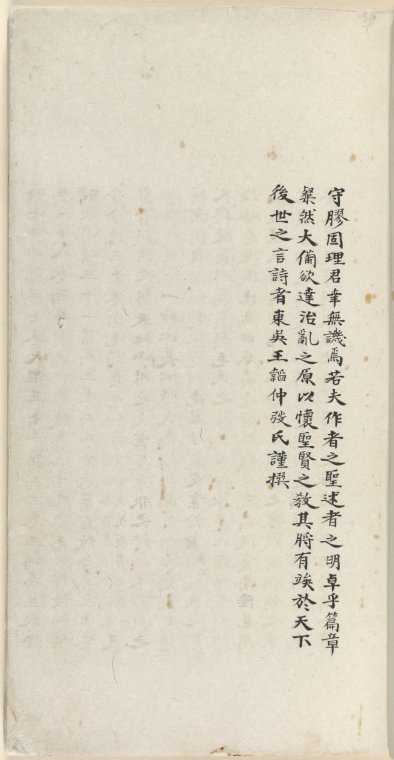 守膠固理君幸無譏焉若夫作者之聖述者之明卓乎篇章
粲然大備欲達治亂之原以懷聖賢之教其將有竢於天下
後世之言詩者東吳王韜仲弢氏謹撰